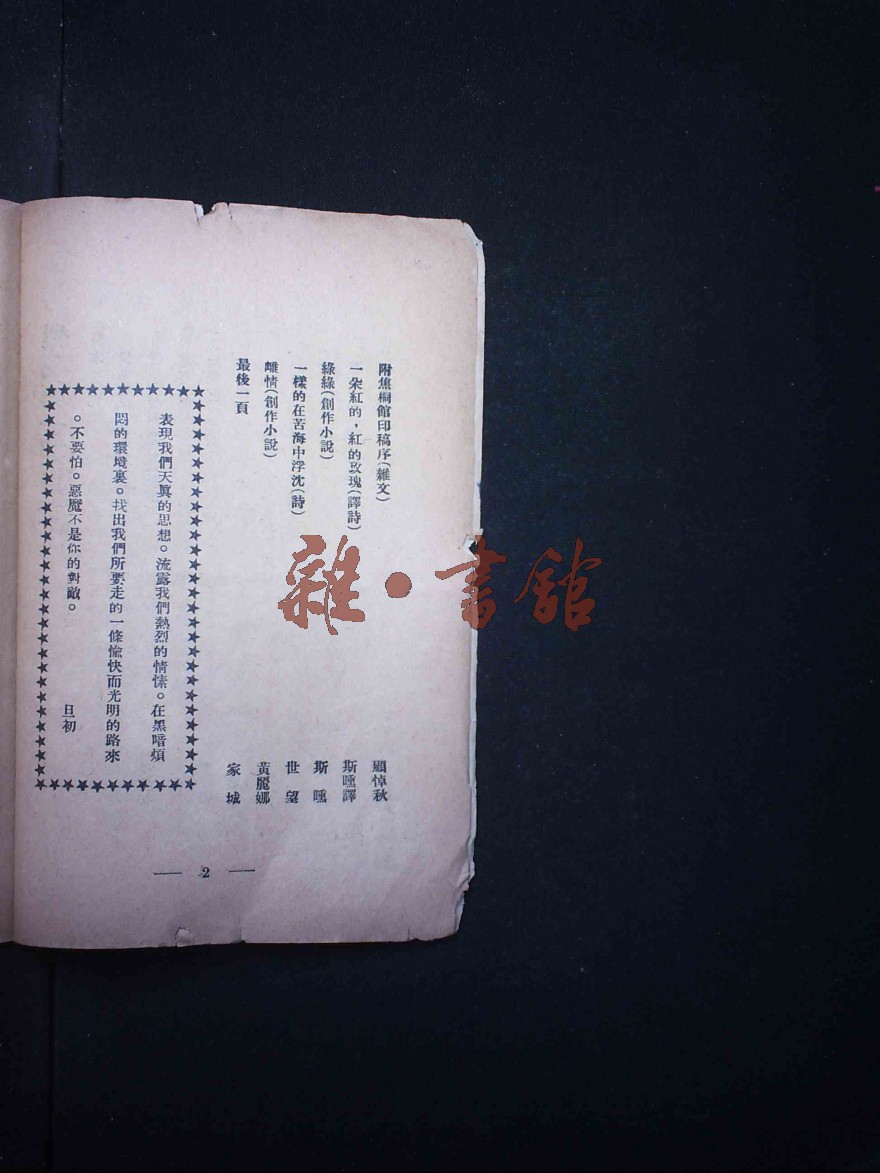 附焦桐館印稿序(雜文)
顧悼秋
一朶紅的，紅的玫瑰(譯詩)
斯曛譯
綠綠(創作小說)
斯曛
一樣的在苦海中浮沈(詩)
世望
離情(創作小說)
黃麗娜
最後一頁
家城
表現我們天眞的思想。流露我們熱烈的情愫。在黑暗煩
悶的環境裏。找出我們所要走的一條愉快而光明的路來
。不要怕。惡魔不是你的對敵。
旦初
— 2 —
雜·書館